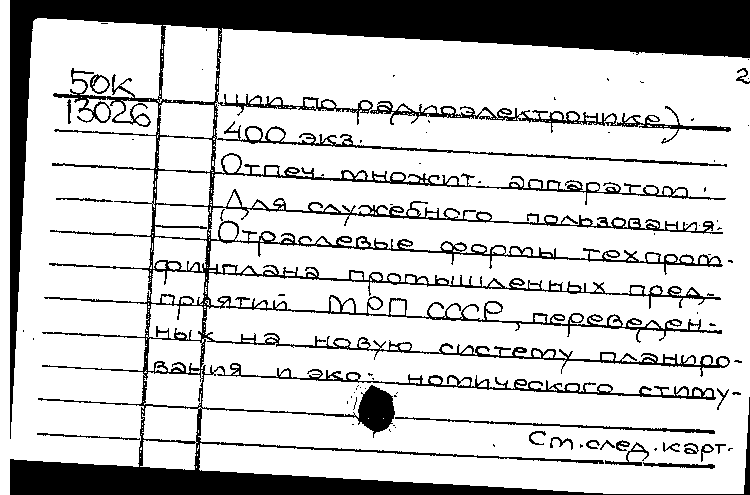 2
50К
13026
ции по радиоэлектронике).
400 экз.
Отпеч. множит. аппаратом.
Для служебного пользования.
Отраслевые формы техпром-
финплана промышленных пред-
приятий МРП СССР, переведен-
ных на новую систему планиро-
вания и эко- номического стиму-
См.след.карт.